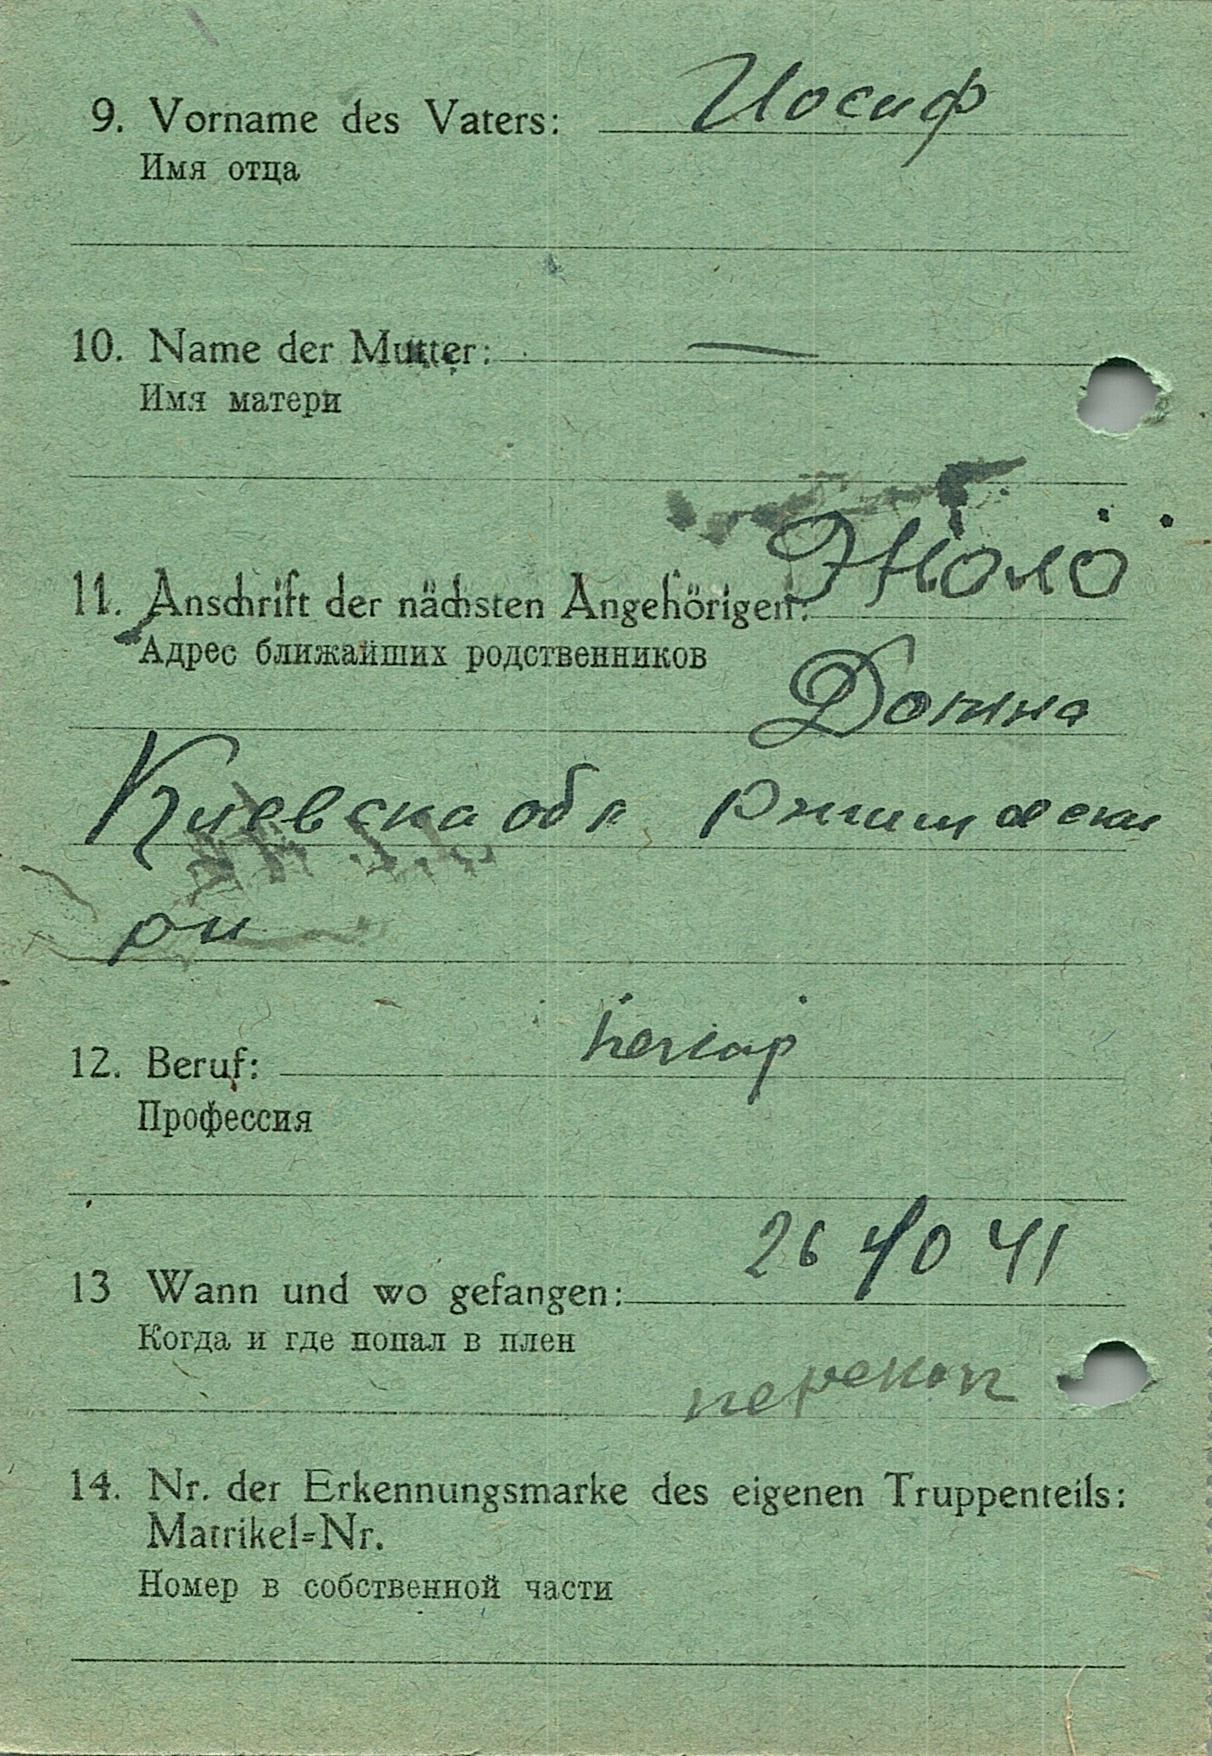 9. Vorname des Vaters: Иосиф
Имя отца
10. Name der Mutter: —
Имя матери
11. Anschrift der nächsten Angehörigen:
Адрес ближайших родственников
Киевска обл
12. Beruf:
Профессия
26 10 41
13 Wann und wo gefangen:
Когда и где попал в плен
перекоп
14. Nr. der Erkennungsmarke des eigenen Truppenteils:
Matrikel=Nr.
Номер в собственной части